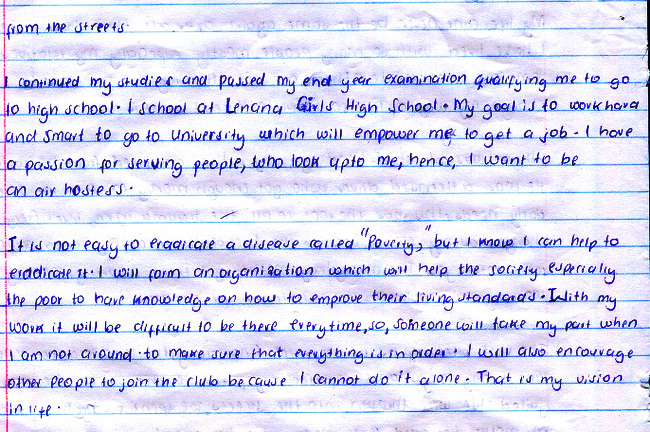 from the streets.
I continued my studies and passed my end year examination qualifying me to go
to high school. I school at Lenana Girls High School. My goal is to work hard
and smart to go to University which will empower me, to get a job. I have
a passion for serving people, who look upto me, hence, I want to be
an air hostess.
It is not easy to eradicate a disease called "Poverty," but I know I can help to
eradicate it. I will form an organisation which will help the society especially
the poor to have knowledge on how to emprove their living standards. With my
work it will be difficult to be there everytime, so, someone will take my part when
I am not around to make sure that everything is in order. I will also encourage
other people to join the club because I cannot do it alone. That is my vision
in life.